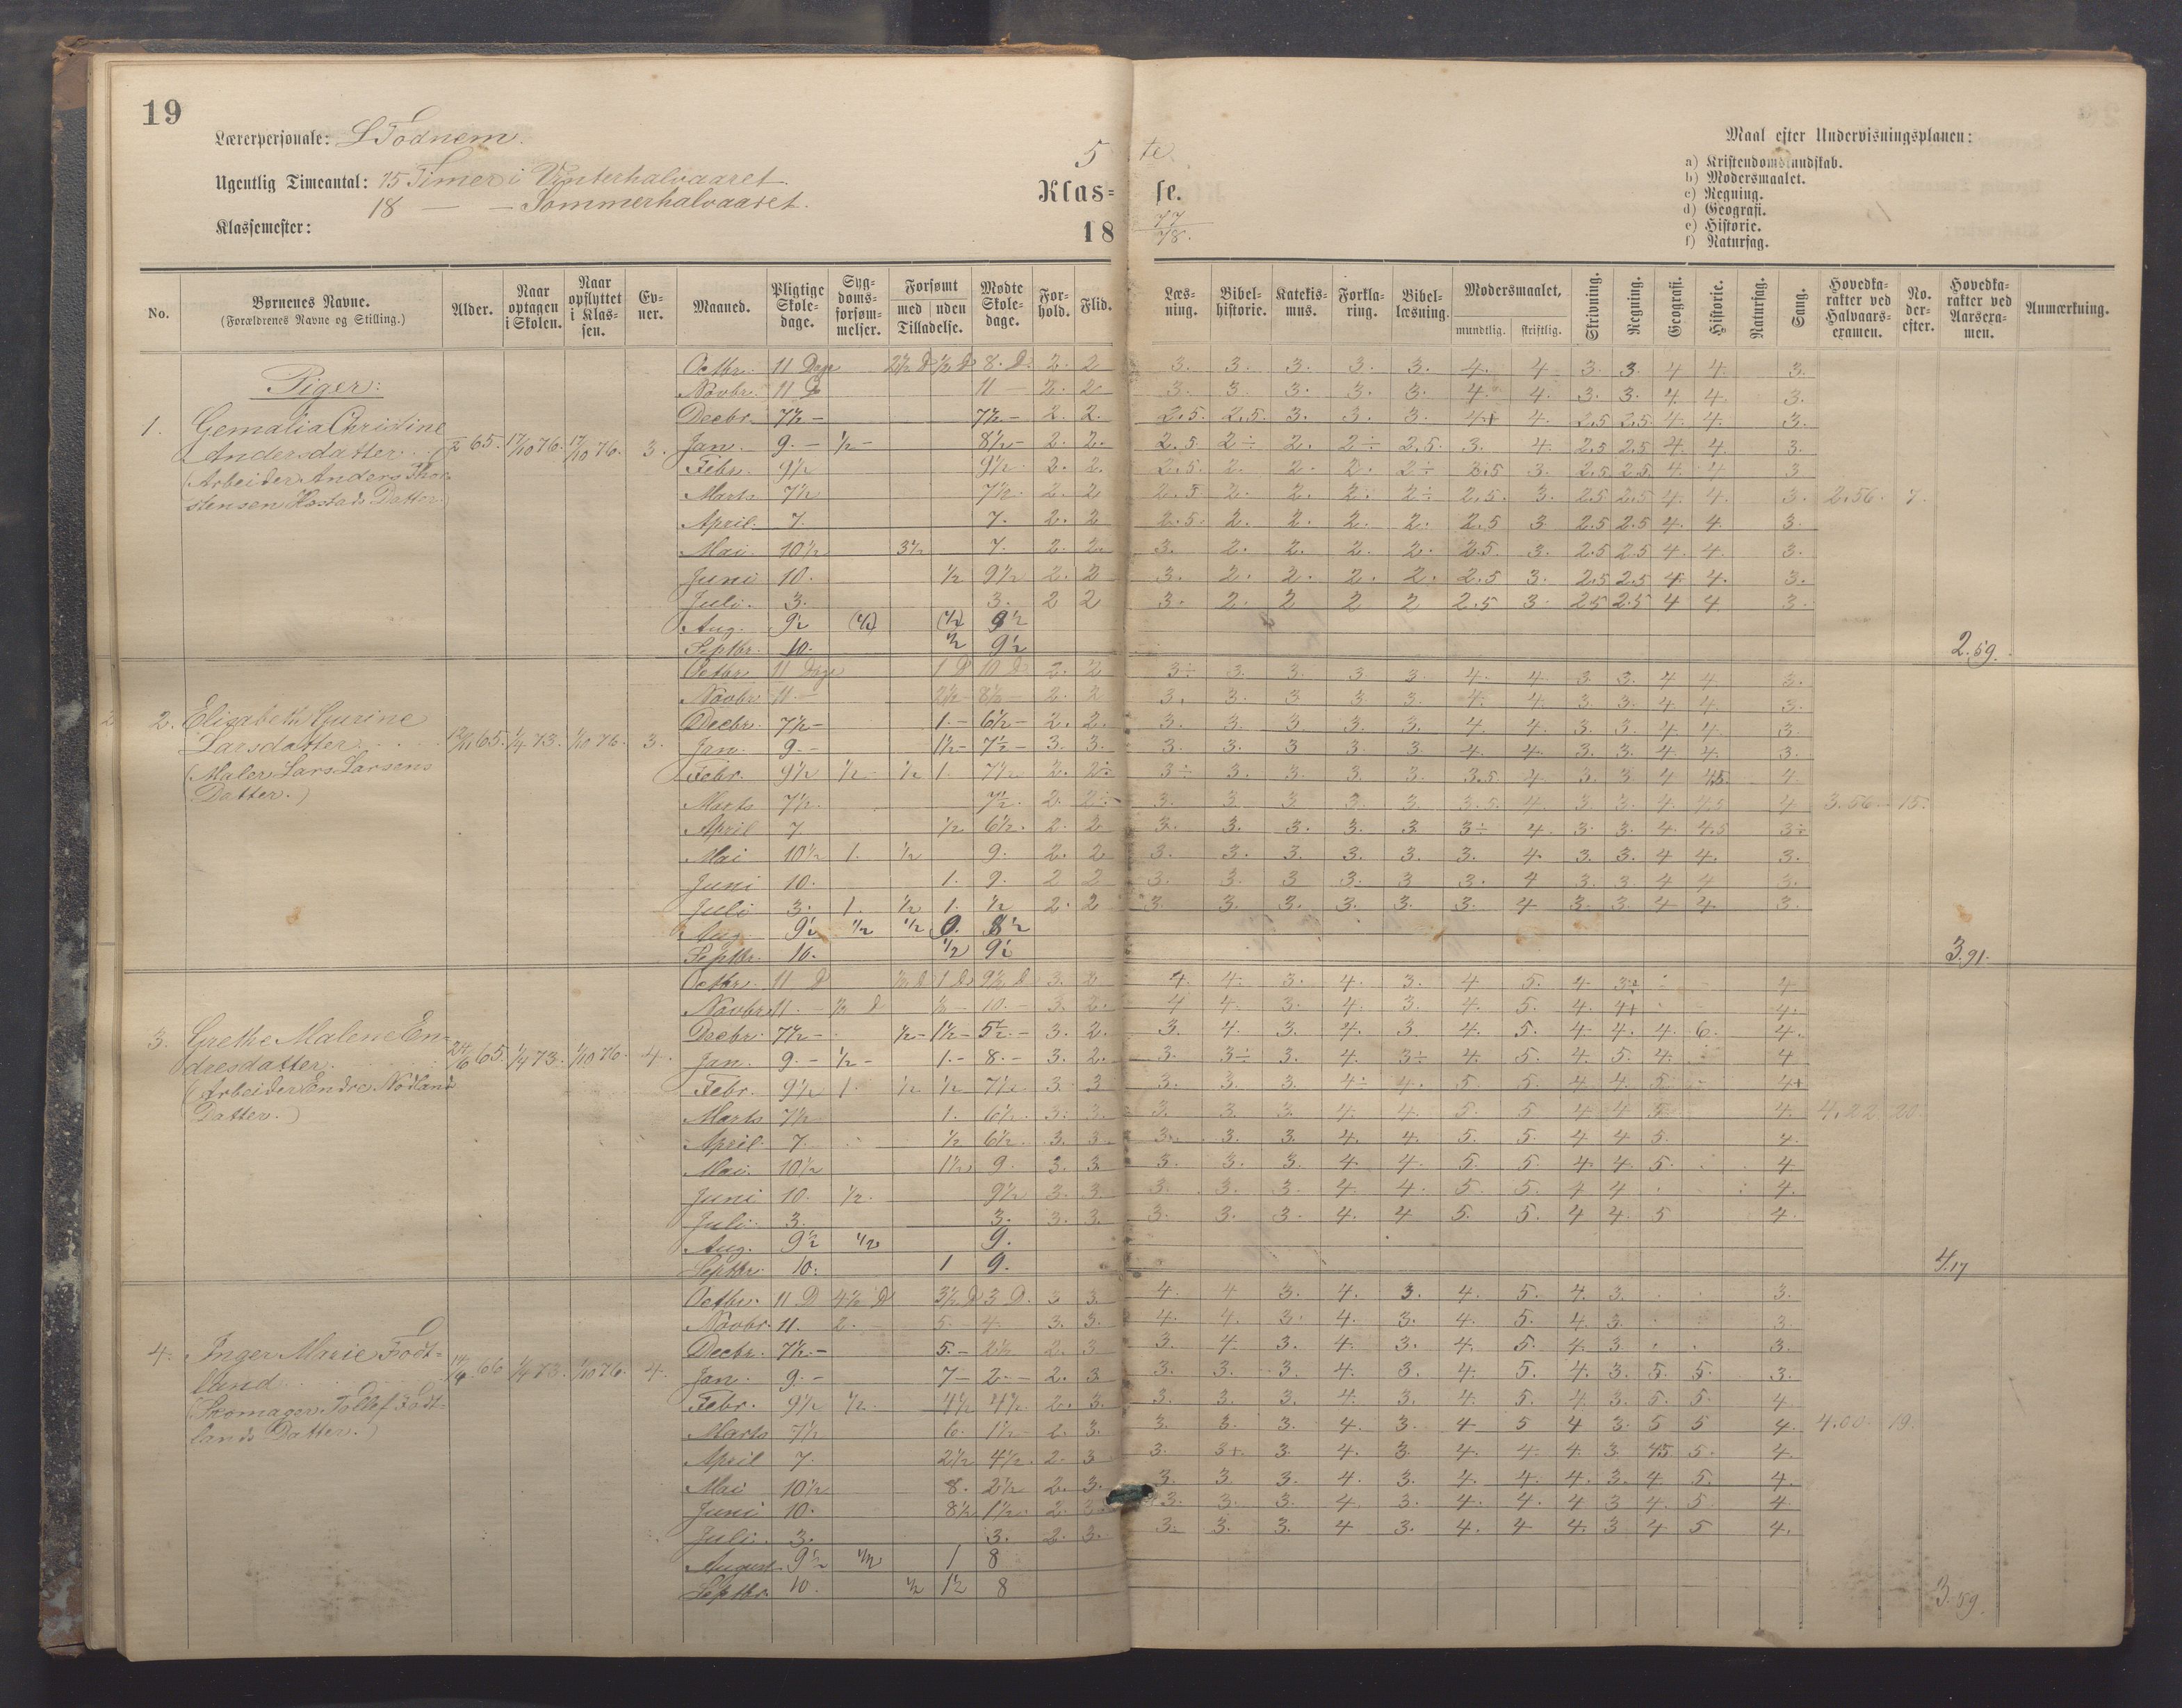 19
Lærerpersonale: L Todnem.
Ugentlig Timeantal: 15 Timer i Vinterhalvaaret.
18 — — Sommerhalvaaret.
Klassemester:
5 te
Klas= se.
18 77/78.
Maal efter Undervisningsplanen:
a) Kristendomskundskab.
b) Modersmaalet.
c) Regning.
d) Geografi.
e) Historie.
f) Naturfag.
No. Børnenes Navne. (Forældrenes Navne og Stilling.) Alder. Naar optagen i Skolen. Naar opflyttet i Klassen. Evner. Maaned. Pligtige Skoledage. Sygdomsforsømmelser. Forsømt med uden Tilladelse. Mødte Skoledage. Forhold. Flid. Læsning. Bibelhistorie. Katekismus. Forklaring. Bibellæsning. Modersmaalet, mundtlig. skriftlig. Skrivning. Regning. Geografi. Historie. Naturfag. Sang. Hovedkarakter ved Halvaarsexamen. No. derefter. Hovedkarakter ved Aarsexamen. Anmærkning.
Piger:
1. Gemalia Christine
Andersdatter 65. 17/10 76. 17/10 76. 3.
(Arbeider Anders Thor-
stensen Datter.)
Octbr. 11 Dage 2½ D ½ D 8. D. 2. 2 3. 3. 3. 3. 3. 4. 4 3. 3. 4 4. 3.
Novbr. 11 D 11 — 2. 2 3. 3. 3. 3. 3. 4. 4. 3. 3. 4. 4. 3.
Decbr. 7½ — 7½ — 2. 2. 2.5. 2.5. 3. 3. 3. 4+ 4. 2.5 2.5. 4. 4. 3.
Jan. 9. — ½ — 8½ — 2. 2. 2.5 2÷ 2. 2÷ 2.5. 3. 4. 2.5 2.5 4. 4. 3.
Febr. 9½ 9½ 2. 2. 2.5. 2. 2. 2. 2÷ 2.5 3. 2.5 2.5 4. 4 3
Marts 7½ 7½. 2. 2 2.5 2. 2. 2. 2÷ 2.5. 3. 2.5 2.5 4. 4. 3. 2.56. 7.
April. 7. 7. 2. 2 2.5. 2. 2. 2. 2. 2.5 3 2.5 2.5 4. 4. 3.
Mai. 10½ 3½ 7. 2. 2. 3. 2. 2. 2. 2. 2.5 3. 2.5 2.5 4. 4. 3.
Juni 10. ½ 9½ 2. 2 3. 2. 2. 2. 2. 2.5 3. 2.5 2.5 4. 4. 3.
Juli. 3. 3. 2 2 3. 2. 2 2 2 2.5 3. 2.5 2.5 4 4 3.
Aug. 9½ (½) (½) 9½
Septbr. 10. ½ 9½ 2.59.
2. Elisabeth Gurine
Larsdatter 65. 1/4 73. 1/10 76. 3.
(Maler Lars Larsens
Datter.)
Octbr. 11 Dage 1 D 10 D. 2. 2 3÷ 3. 3. 3. 3. 4. 4. 3. 3. 4 4 3.
Novbr 11. — 2½ — 8½ — 2. 2 3. 3. 3 3. 3. 4. 4. 3. 3. 4 4. 3.
Decbr. 7½ — 1. — 6½ — 2. 2. 3. 3. 3. 3. 3. 4 4. 3. 3. 4 4. 3.
Jan. 9. — 1½ — 7½ — 3. 3. 3. 3. 3 3 3. 4 4. 3. 3. 4 4. 3.
Febr. 9½ ½ ½ 1. 7½ 2. 2÷ 3÷ 3. 3. 3. 3. 3.5. 4. 3. 3. 4 4.5. 4
Marts 7½. 7½. 2. 2÷ 3. 3. 3 3. 3. 3.5. 4. 3 3. 4. 4.5 4 3.56. 15.
April 7. ½ 6½. 2. 2 3. 3. 3. 3. 3. 3÷ 4. 3. 3. 4. 4.5 3÷
Mai 10½ 1. ½ 9. 2. 2. 3. 3. 3. 3. 3. 3. 4. 3. 3. 4 4. 3.
Juni 10. 1. 9. 2 2 3. 3. 3 3. 3 3. 4 3. 3. 4 4 3.
Juli 3. 1. ½ 1. ½ 2. 2 3. 3. 3. 3. 3. 3. 4 3. 3. 4 4. 3.
Aug. 9½ ½ ½ 0. 8½
Septbr. 10. ½ 9½ 3.91.
3. Grethe Malene En-
dresdatter 24/6 65. 1/4 73. 1/10 76. 4.
(Arbeider Endre Nodland
Datter.)
Octbr. 11 D ½ D 1 D. 9½ D 3. 2 4. 4. 3. 4. 3. 4 5. 4 4
Novbr 11. — ½ D ½ — 10. — 3. 2. 4 4. 3. 4. 3. 4. 5. 4 4+ 4.
Decbr. 7½ — ½ — 1½ — 5½ — 3. 2. 3. 4. 3. 4. 3 4. 5. 4. 4. 4 6. 4.
Jan. 9. — ½ — 1. — 8. — 3. 2. 3. 3÷ 3. 4. 3÷ 4. 5. 4. 5. 4. 4
Febr. 9½ 1. ½ ½ 7½ 3. 3 3. 3. 3. 4÷ 4. 5. 5. 4 4. 5 4+
Marts 7½ 1. 6½ 3. 3. 3. 3. 3 4. 4. 5. 5 4 4 5 4. 4.22 20.
April. 7. ½ 6½. 3. 3 3. 3. 3. 4. 4. 5. 5. 4 4 5. 4.
Mai. 10½ 1½ 9. 3. 3. 3. 3. 3. 4. 4. 5. 5. 4. 4. 5. 4.
Juni 10. ½. 9½ 3. 3. 3. 3. 3. 4. 4. 5. 5. 4 4 4.
Juli. 3. 3. 3. 3. 3. 3. 3. 4. 4 5. 5. 4 4. 5 4.
Aug. 9½ ½ 9.
Septbr. 10. 1 9. 4.17
4. Inger Marie Fodt-
land 66 1/4 73. 1/10 76. 4.
(Skomager Tollef Fodt-
lands Datter.)
Octbr. 11 D 4½ D 3½ D 3 D. 3 3. 4. 4 3. 4. 3. 4. 5. 4. 3. 3.
Novbr. 11. 2. 5. 4. 3. 3. 4. 4. 3. 4. 3. 4. 5. 4. 3. 3.
Decbr. 7½. — 5. — 2½ 2. 3 3. 4. 3. 4. 3. 4. 5. 4. 3 3.
Jan. 9. — 7 — 2. — 2. 3 3. 3. 3. 4. 3. 4. 5. 4. 3. 5. 5. 3.
Febr. 9½ ½. 4½ 4½ 2. 3. 3. 3. 3. 4. 3. 4. 5. 4. 3. 5. 5. 4
Marts 7½ 6. 1½ — 2. 3. 3. 3. 3. 4. 3. 4 5 4 3. 5 5 4. 4.00. 19.
April 7. 2½ 4½. 2. 3 3. 3+. 3 4. 3. 4. 4 4. 3 4.5 5. 4.
Mai 10½ 8. 2½ 2. 3. 3. 3. 3. 4. 3. 4. 4. 4. 3. 4. 5. 4.
Juni 10. 8½ 1½ 2. 3. 3. 3. 3. 4. 3. 4. 4. 4 3 4. 5 4.
Juli. 3. 3. 2. 3. 3. 3. 3. 4 3. 4. 4 4. 3 4 5 4.
August 9½ ½ 1 8
Septbr. 10. ½ 1½ 8 3.59.